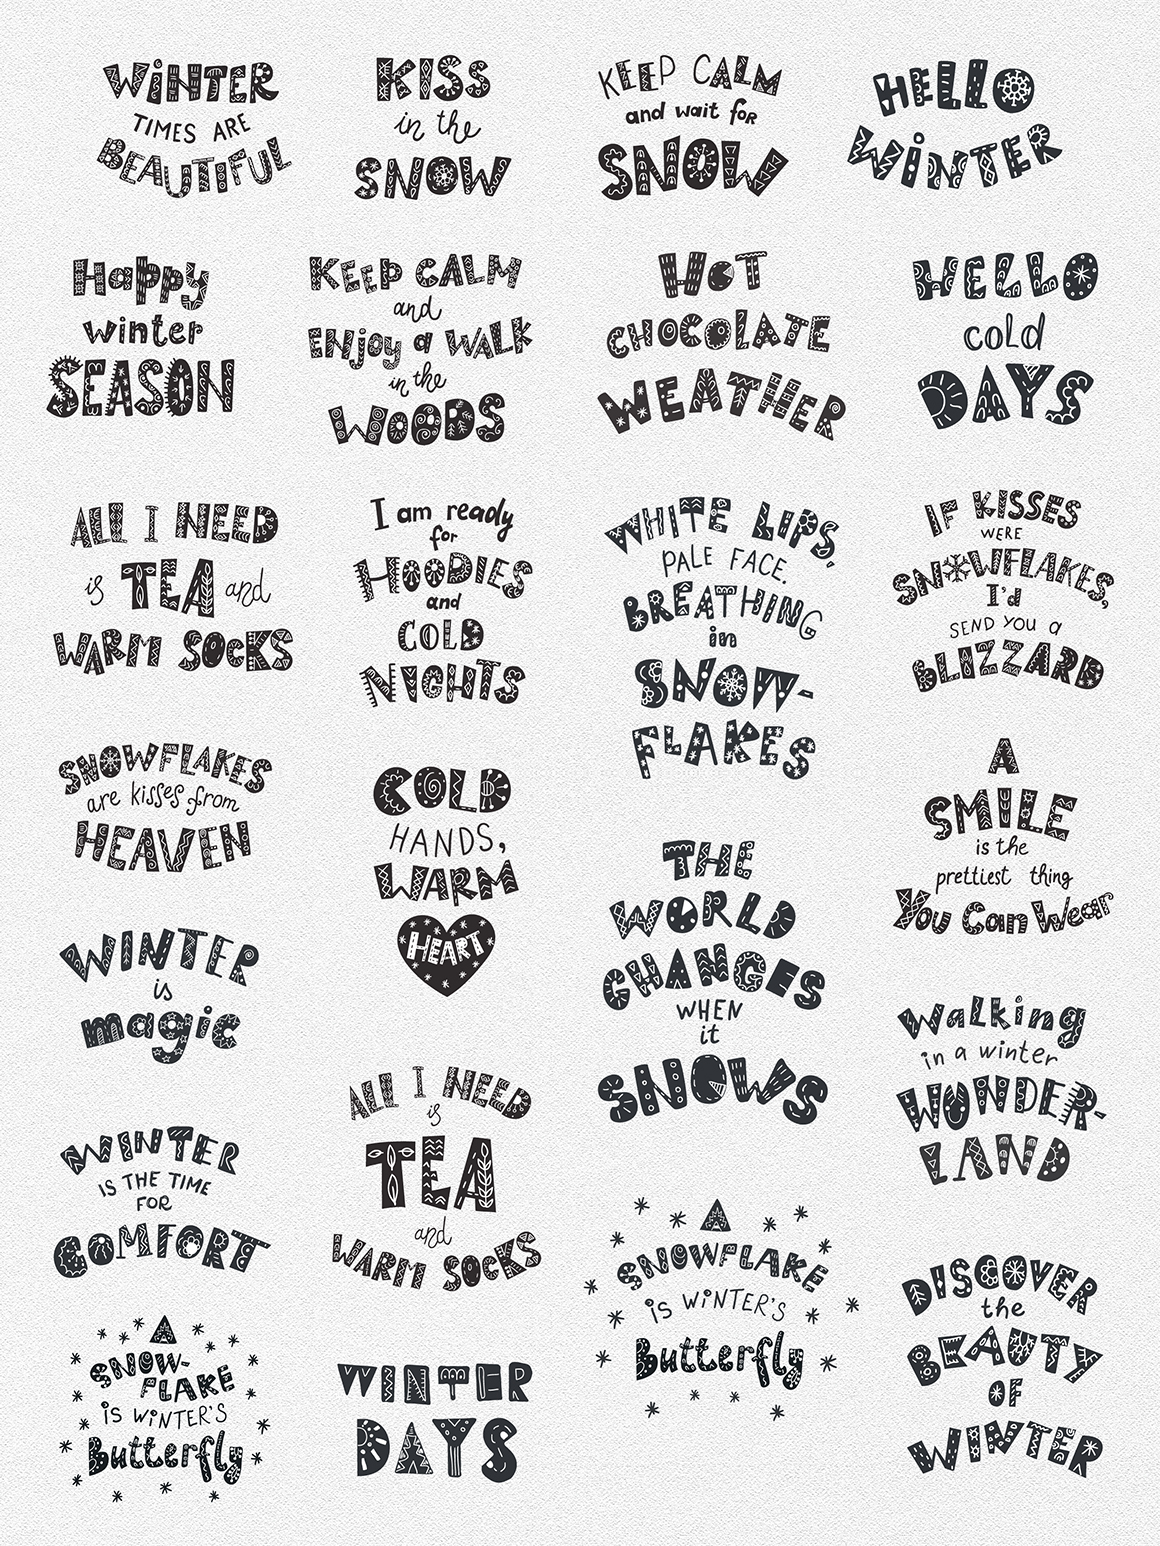 WINTER
TIMES ARE
BEAUTIFUL
KISS
in the
SNOW
KEEP CALM
and wait for
SNOW
HELLO
WINTER
Happy
winter
SEASON
KEEP CALM
and
ENJOY a WALK
in the
WOODS
HOT
CHOCOLATE
WEATHER
HELLO
cold
DAYS
ALL I NEED
is TEA and
WARM SOCKS
I am ready
for
HOODIES
and
COLD
NIGHTS
WHITE LIPS,
PALE FACE.
BREATHING
in
SNOW-
FLAKES
IF KISSES
WERE
SNOWFLAKES,
I'd
SEND YOU a
BLIZZARD
SNOWFLAKES
are kisses from
HEAVEN
COLD
HANDS,
WARM
HEART
THE
WORLD
CHANGES
WHEN
it
SNOWS
A
SMILE
is the
prettiest thing
You Can Wear
WINTER
is
magic
ALL I NEED
is
TEA
and
WARM SOCKS
Walking
in a winter
WONDER-
LAND
WINTER
IS THE TIME
FOR
COMFORT
A
SNOWFLAKE
iS WiNTER'S
Butterfly
DISCOVER
the
BEAUTY
OF
WINTER
A
SNOW-
FLAKE
iS WiNTER'S
Butterfly
WINTER
DAYS